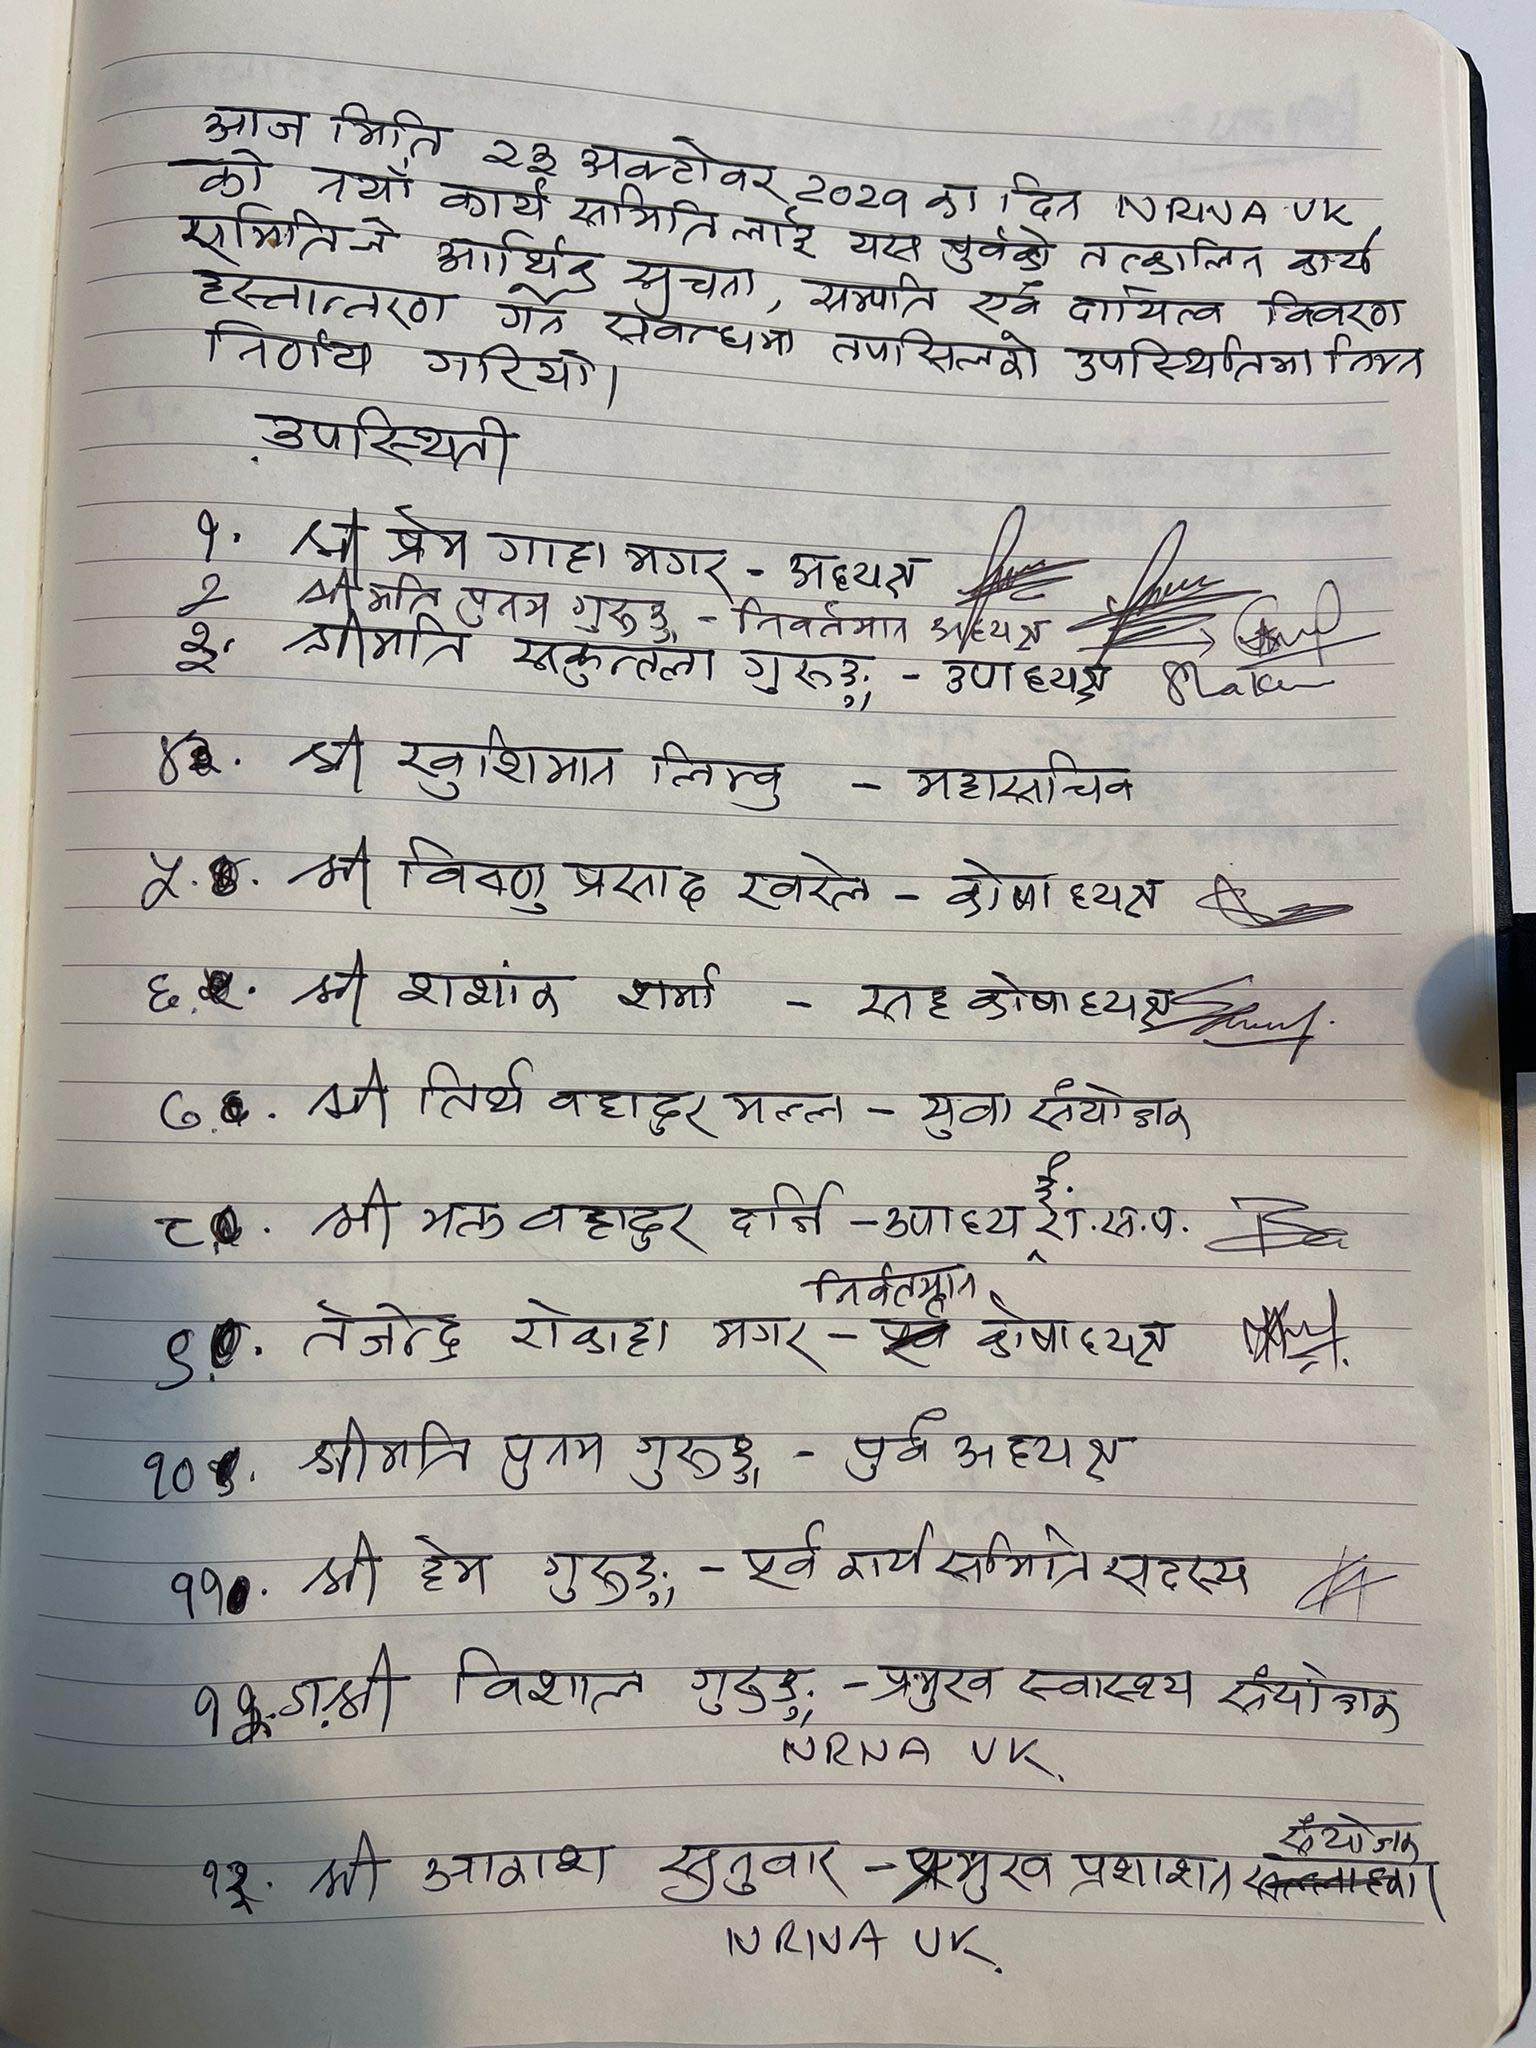 आज मिति २३ अक्टोवर २०२१ का दिन NRNA UK
को नयाँ कार्य समितिलाई यस पुर्वको तत्कालिन कार्य
समितिले आर्थिक सुचना, सम्पति एवं दायित्व विवरण
हस्तान्तरण गर्ने संवन्धमा तपसिलको उपस्थितिमा निम्न
निर्णय गरियो।
उपस्थिती
१. श्री प्रेम गाहा मगर - अध्यक्ष
२ श्रीमति पुनम गुरुङ्ग - निवर्तमान अध्यक्ष
३. श्रीमति सकुन्तला गुरुङ्ग - उपाध्यक्ष
४. श्री खुशिमान लिम्वु - महासचिव
५. श्री विष्णु प्रसाद खरेल - कोषाध्यक्ष
६. श्री शशांक शर्मा - सह कोषाध्यक्ष
७. श्री तिर्थ वहादुर मल्ल - युवा संयोजक
८. श्री भक्त वहादुर दर्जि - उपाध्य ई. रा.स.प.
निर्वतमान
९. तेजेन्द्र रोकाहा मगर - कोषाध्यक्ष
१०. श्रीमति पुनम गुरुङ्ग - पुर्व अध्यक्ष
११. श्री हेम गुरुङ्ग - पूर्व कार्य समिति सदस्य
१२. डा. श्री विशाल गुरुङ्ग - प्रमुख स्वास्थ्य संयोजक
NRNA UK.
संयोजक
१३. श्री आकाश सुनुवार - प्रमुख प्रशाशन
NRNA UK.